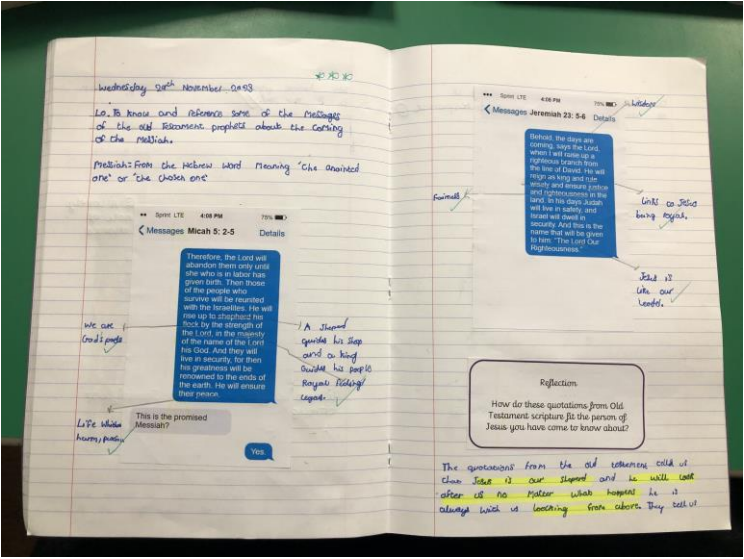 Wednesday 29th November 2023
L.O. To know and reference some of the Messages
of the old Testament prophets about the Coming
of the Messiah.
Messiah: From the Hebrew word Meaning "the anointed
one" or "the chosen one"
Sprint LTE 4:08 PM 79%
Messages Micah 5: 2-5 Details
Therefore, the Lord will
abandon them only until
she who is in labor has
given birth. Then those
of the people who
survive will be reunited
with the Israelites. He will
rise up to shepherd his
flock by the strength of
the Lord, in the majesty
of the name of the Lord
his God. And they will
live in security, for then
his greatness will be
renowned to the ends of
the earth. He will ensure
their peace.
This is the promised
Messiah?
Yes.
We are
God's people
Life without
harm,
A Sheperd
guides his sheep
and a king
Guides his people
Royal
Sprint LTE 4:08 PM 79%
Messages Jeremiah 23: 5-6 Details
Behold, the days are
coming, says the Lord,
when I will raise up a
righteous branch from
the line of David. He will
reign as king and rule
wisely and ensure justice
and righteousness in the
land. In his days Judah
will live in safety, and
Israel will dwell in
security. And this is the
name that will be given
to him: "The Lord Our
Righteousness."
Wisdom
Fairness
Links to Jesus
being royal.
Jesus is
like our
leader.
Reflection
How do these quotations from Old
Testament scripture fit the person of
Jesus you have come to know about?
The quotations from the old testement told us
that Jesus is our Sheperd and he will look
after us no matter what happens he is
always with us loocking from above. They tell us